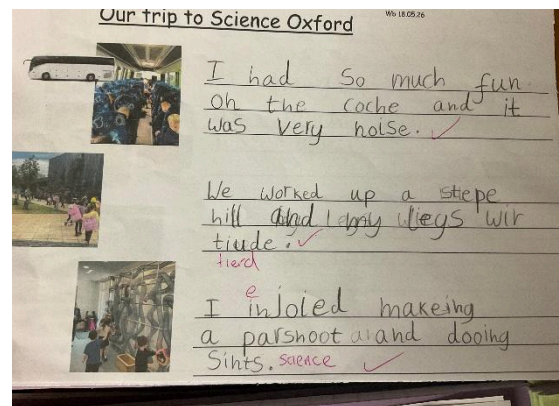 Our trip to Science Oxford
Wb 18.05.26
I had so much fun
on the coche and it
was very noise.
We worked up a stepe
hill and my liegs wir
tiude.
tierd
e
I injoied makeing
a parshoot and dooing
Sints. saence